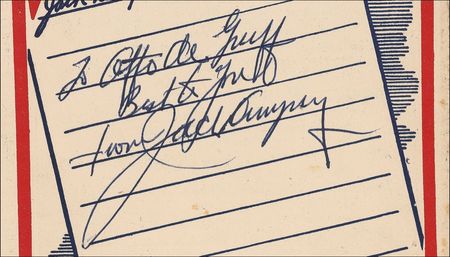 Jack
To Otto de Greff
Best to You
from Jack Dempsey